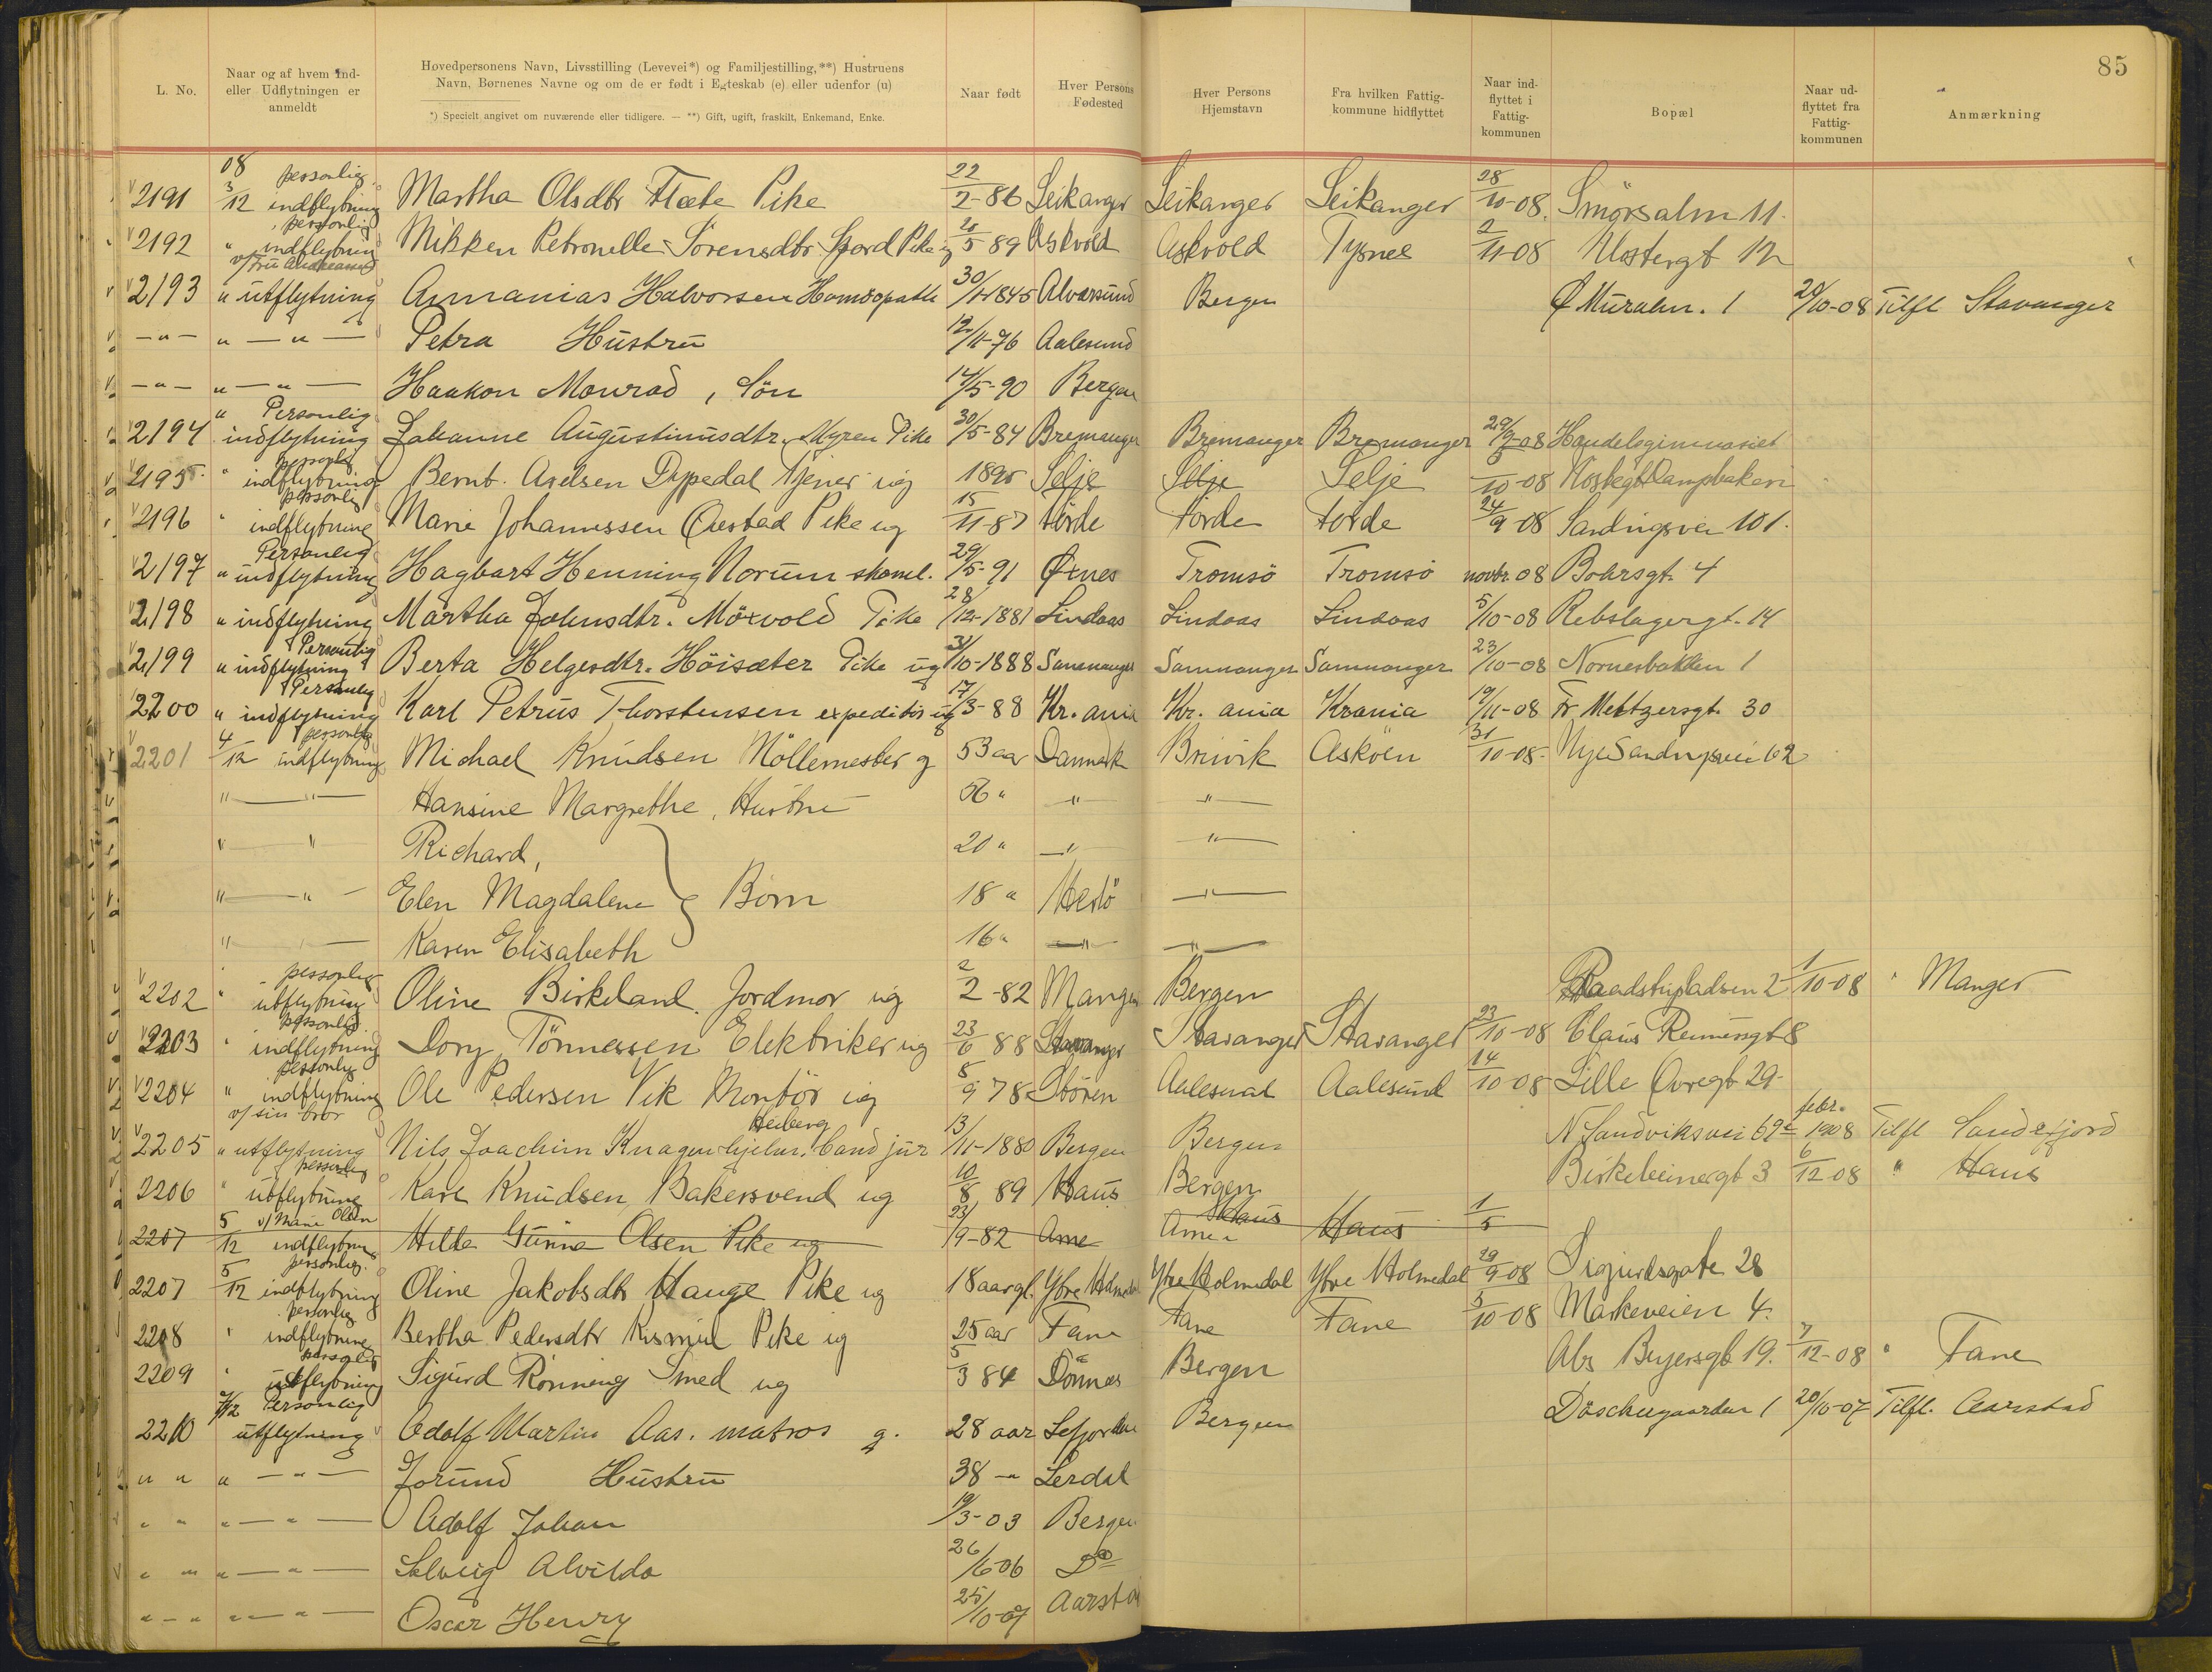 85
L. No.
Naar og af hvem Ind- eller Udflytningen er anmeldt
Hovedpersonens Navn, Livsstilling (Levevei*) og Familjestilling,**) Hustruens Navn, Børnenes Navne og om de er født i Egteskab (e) eller udenfor (u)
*) Specielt angivet om nuværende eller tidligere. — **) Gift, ugift, fraskilt, Enkemand, Enke.
Naar født
Hver Persons Fødested
Hver Persons Hjemstavn
Fra hvilken Fattig-kommune hidflyttet
Naar ind-flyttet i Fattig-kommunen
Bopæl
Naar ud-flyttet fra Fattig-kommunen
Anmærkning
2191 08 3/12 personlig indflytning Martha Olsdtr Flæte Pike 22/2-86 Leikanger Leikanger Leikanger 28/10-08. Smörsalm 11.
2192 " personlig indflytning Mikken Petronelle Sörensdtr Fjord Pike ug 20/5 89 Askvold Askvold Tysnes 2/11-08 Klostergt 12
2193 " v/ fru utflytning Annanias Halvorsen Homöopath 30/11 1845 Alversund Bergen Ø Muralm. 1 29/10-08 Tilfl Stavanger
-"- " - " - Petra Hustru 12/11-76 Aalesund
-"- " - " - Haakon Monrad, Sön 14/5-90 Bergen
2194 " Personlig indflytning Johanne Augustinusdtr. Myren Pike 30/5-84 Bremanger Bremanger Bremanger 29/9-08 Handelsgimnasiet
2195 " personlig indflytning Bernt. Axelsen Dypedal tjener ug 1895 Selje Selje Selje 10-08 Klostegt Dampbakeri
2196 " personlig indflytning Marie Johannessen Örestad Pike ug 15/11-87 Förde Förde Förde 24/9-08 Sandvigsvei 101.
2197 " Personlig indflytning Hagbart Henning Norum skoml. 29/5-91 Øxnes Tromsö Tromsö novbr. 08 Bohrsgt. 4
2198 " indflytning Martha Johnsdtr. Möxvold Pike 28/12-1881 Lindaas Lindaas Lindaas 5/10-08 Rebslagergt. 14
2199 " Personlig indflytning Berta Helgesdtr. Höisæter Pike ug 31/10-1888 Samnanger Samnanger Samnanger 23/10-08 Nornesbakken 1
2200 " Personlig indflytning Karl Petrus Thorstensen expeditör ug 17/3-88 Kr. ania Kr. ania Krania 19/11-08 Fr Meltzersgt. 30
2201 4/12 personlig indflytning Michael Knudsen Möllemester g 53 aar Danmark Brivik Asköen 31/10-08- Nye Sandvigsvei 62
" — " — Hansine Margrethe, Hustru 56 " — " — — " —
" — " Richard, 20 " — " — — " —
" — " — Elen Magdalene } Börn 18 " Herlö — " —
" — Karen Elisabeth 16 " — " — — " —
2202 " personlig utflytning Oline Birkeland. Jordmor ug 2/2-82 Manger Bergen Raadstupladsen 2 1/10-08 " Manger
2203 " personlig. indflytning Dory Tönnessen Elektriker ug 23/6 88 Stavanger Stavanger Stavanger 23/10-08 Claus Reimersgt 8
2204 " personlig indflytning Ole Pedersen Vik Montör ug 5/9 78 Stören Aalesund Aalesund 14/10 08 Lille Övregt 29
2205 " v/ sin bror utflytning Nils Joachim Knagenhjelm Heiberg Cand jur 13/11-1880 Bergen Bergen N. Sandviksvei 69c febr. 1908 Tilfl Sandefjord
2206 " personlig utflytning Karl Knudsen, Bakersvend ug 10/8 89 Haus Bergen Birkebeinergt 3 6/12 08 " Haus
2207 5/12 v/ Marie Olsen indflytning Hilda Gunna Olsen Pike ug 23/9-82 Arne Arne Haus Haus 1/5
2207 5/12 personlig. indflytning Oline Jakobsdtr Hauge Pike ug 18 aar gl. Ytre Holmedal Ytre Holmedal Ytre Holmedal 29/9-08 Sigurdsgate 28
2208 " personlig indflytning Bertha Pedersdtr Kismul Pike ug 25 aar Fane Fane Fane 5/10-08 Markeveien 4.
2209 " personlig utflytning Sigurd Rönning Smed ug 5/3 84 Dönnes Bergen Abs Beyersgt 19. 7/12-08 " Fane
2210 7/12 Personlig utflytning Adolf Martin Aas. matros g. 28 aar Bergen Döschergaarden 1 20/10-07 Tilfl. Aarstad
" " " - " - Jorund Hustru 38 - " Lerdal
" " " - " - Adolf Johan 19/3-03 Bergen
" " " - " - Solveig Alvilda 26/6 06 Do
" - " " - " - Oscar Henry 25/10-07 Aarstad